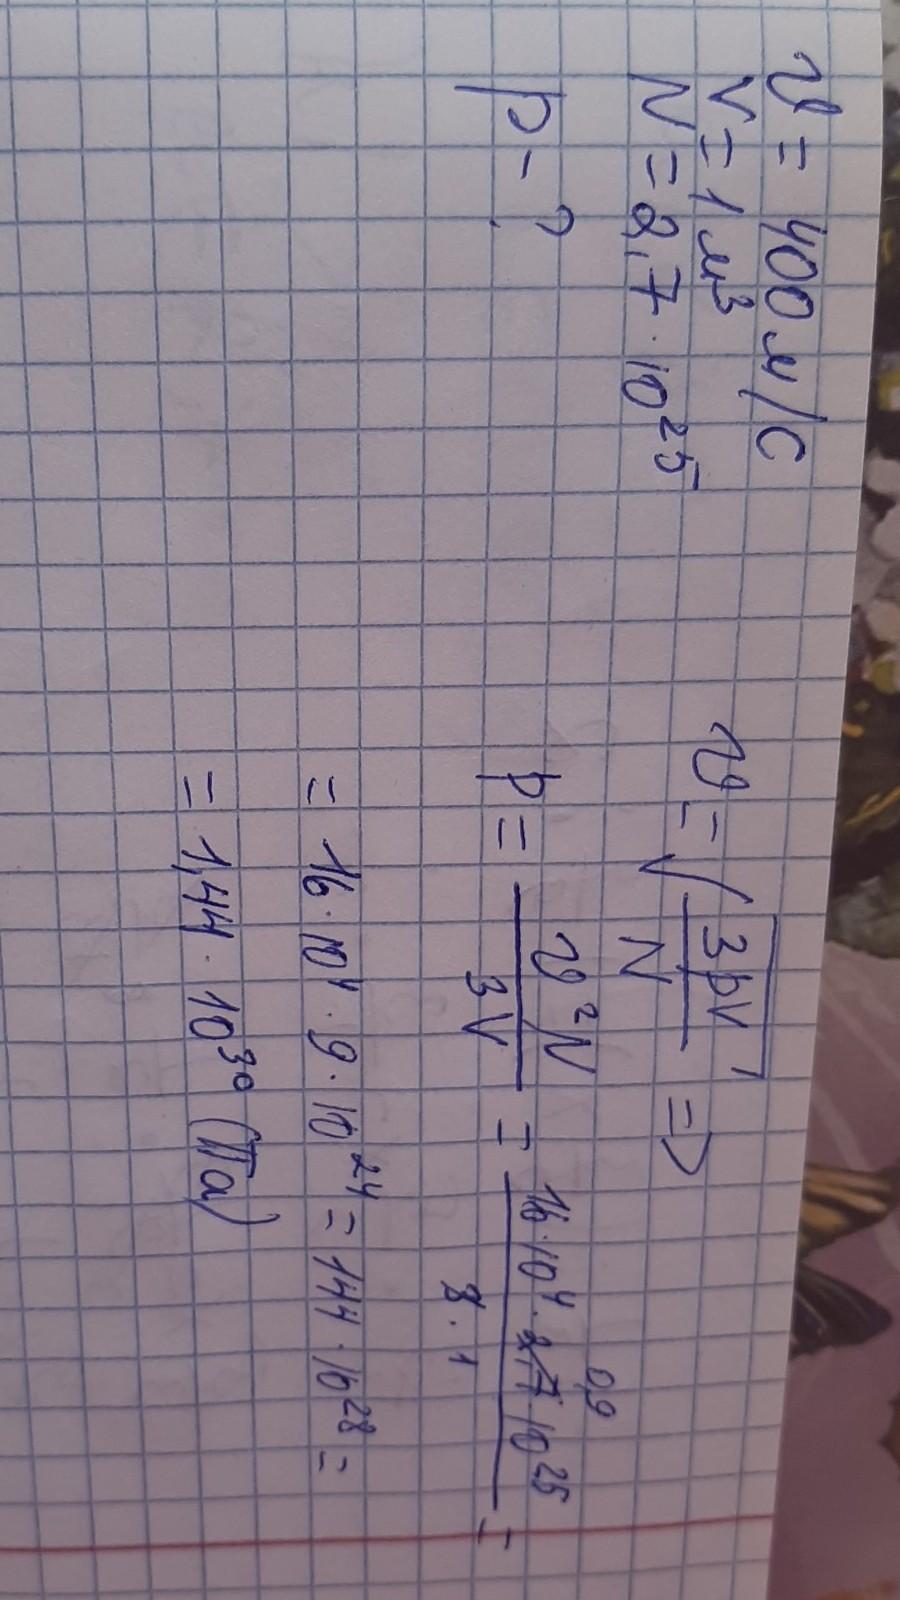 v = 400 м/с
V = 1 м³
N = 2,7 · 10²⁵
p - ?
v = √(3pV/N) =>
p = v²N/3V = 16·10⁴·2,7·10²⁵/3·1 =
0,9
= 16·10⁴·9·10²⁴ = 144·10²⁸ =
= 1,44·10³⁰ (Па)